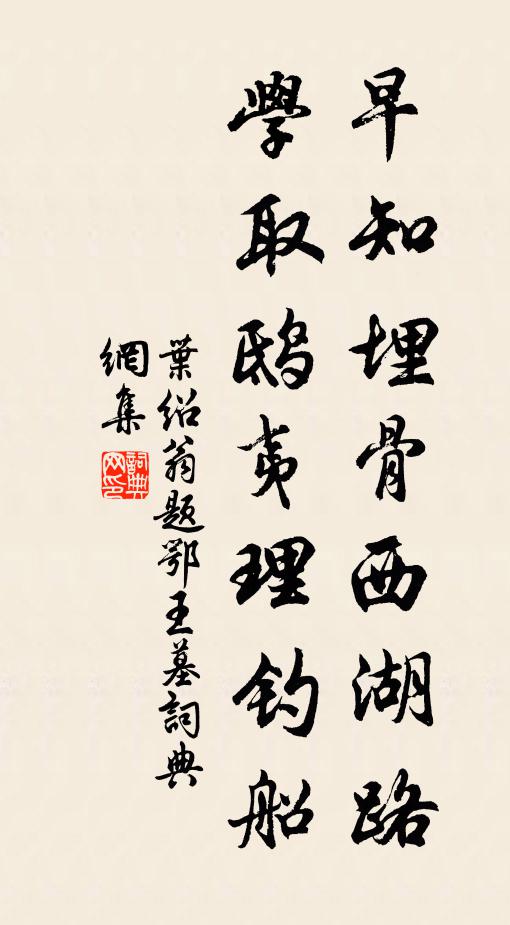 早知埋骨西湖路
學取鴟夷理钓船
葉绍翁题鄂王墓詞典
網集
詞典网印